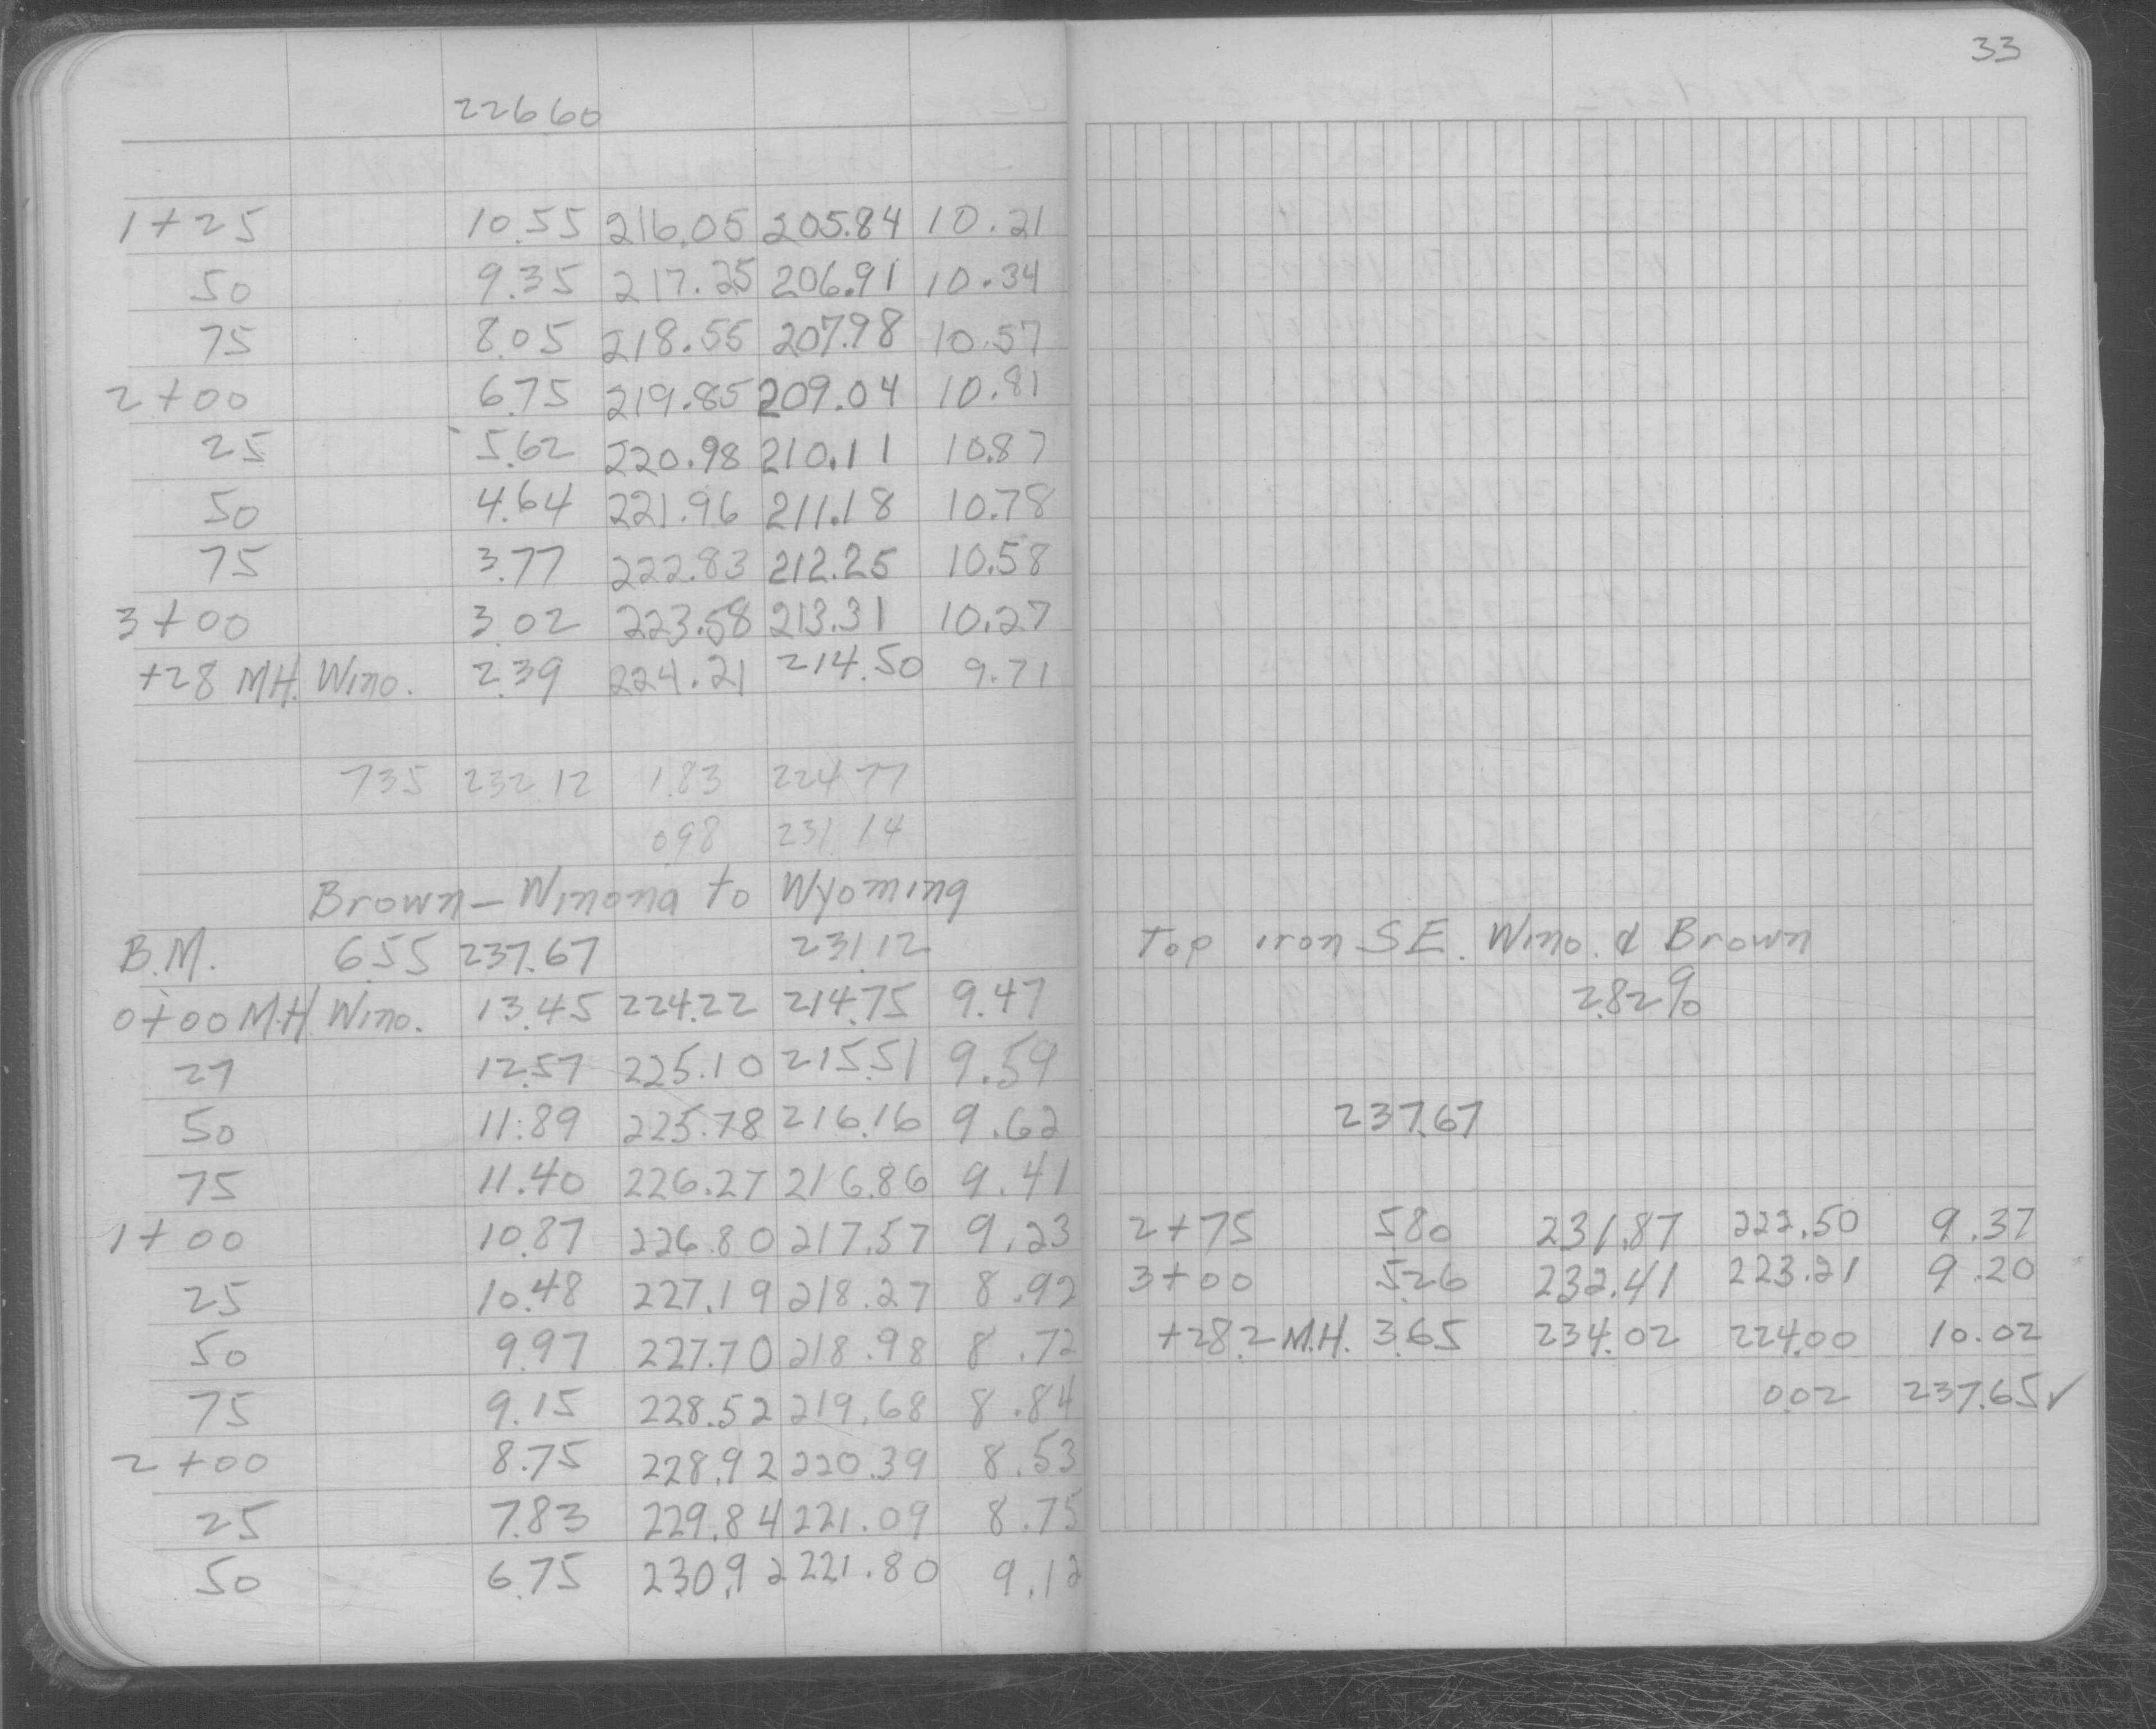 22660
1+25 10.55 216.05 205.84 10.21
50 9.35 217.25 206.91 10.34
75 8.05 218.55 207.98 10.57
2+00 6.75 219.85 209.04 10.81
25 5.62 220.98 210.11 10.87
50 4.64 221.96 211.18 10.78
75 3.77 222.83 212.25 10.58
3+00 3.02 223.58 213.31 10.27
+28 MH. Wino. 2.39 224.21 214.50 9.71
735 232 12 1.83 224 77
098 231 14
Brown - Winona to Wyoming
B.M. 655 237.67 231.12
0+00 M.H Wino. 13.45 224.22 214.75 9.47
27 12.57 225.10 215.51 9.59
50 11.89 225.78 216.16 9.62
75 11.40 226.27 216.86 9.41
1+00 10.87 226.80 217.57 9.23
25 10.48 227.19 218.27 8.92
50 9.97 227.70 218.98 8.72
75 9.15 228.52 219.68 8.84
2+00 8.75 228.92 220.39 8.53
25 7.83 229.84 221.09 8.75
50 6.75 230.92 221.80 9.12
33
Top iron SE. Wino. & Brown
2.82%
237.67
2+75 580 231.87 222.50 9.37
3+00 5.26 232.41 223.21 9.20
+28.2 M.H. 3.65 234.02 224.00 10.02
002 237.65 ✓